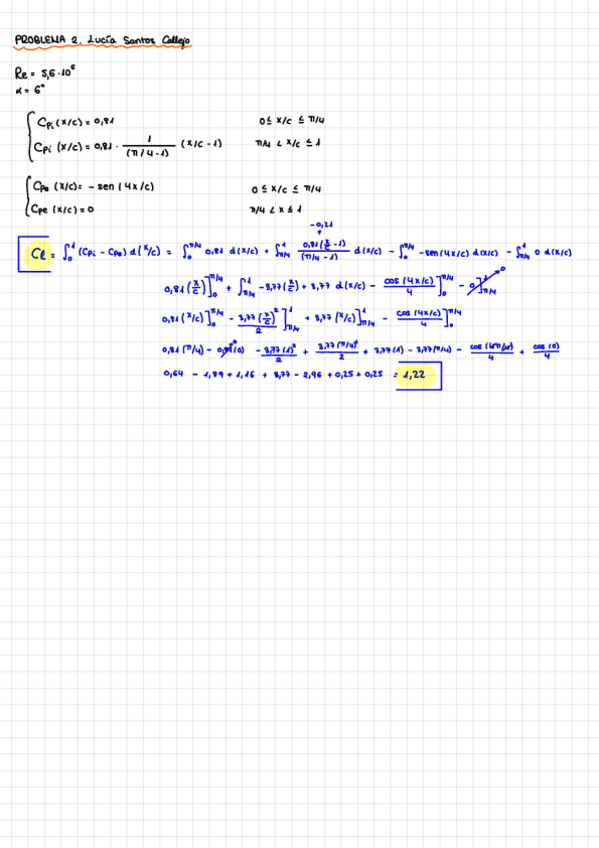 PROBLEMA 2. Lucía Santos Callejo
Re = 5,6·10⁶
α = 6°
Cpi (x/c) = 0,81 0 ≤ x/c ≤ π/4
Cpi (x/c) = 0,81 · 1/(π/4-1) (x/c -1) π/4 < x/c ≤ 1
Cpe (x/c) = - sen (4x/c) 0 ≤ x/c ≤ π/4
Cpe (x/c) = 0 π/4 < x ≤ 1
-0,21
Cl = ∫₀¹ (Cpi - Cpe) d(x/c) = ∫₀^π/4 0,81 d(x/c) + ∫π/4^1 0,81(x/c -1)/(π/4 -1) d(x/c) - ∫₀^π/4 -sen(4x/c) d(x/c) - ∫π/4^1 0 d(x/c)
0,81(x/c)]₀^π/4 + ∫π/4^1 -3,77(x/c) + 3,77 d(x/c) - cos(4x/c)/4]₀^π/4 - 0]π/4^1 0
0,81(x/c)]₀^π/4 - 3,77(x/c)²/2]π/4^1 + 3,77(x/c)]π/4^1 - cos(4x/c)/4]₀^π/4
0,81(π/4) - 0,81(0) - 3,77(1)²/2 + 3,77(π/4)²/2 + 3,77(1) - 3,77(π/4) - cos(4π/4)/4 + cos(0)/4
0,64 - 1,89 + 1,16 + 3,77 - 2,96 + 0,25 + 0,25 = 1,22